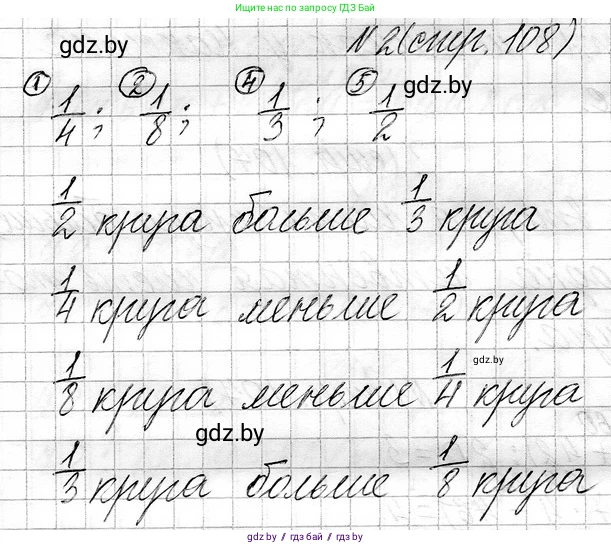 Ищите нас по запросу ГДЗ БАЙ
gdz.by
N2(стр. 108)
① 1/4 ; ② 1/8 ; ④ 1/3 ; ⑤ 1/2
gdz.by
1/2 круга больше 1/3 круга
1/4 круга меньше 1/2 круга
gdz.by
1/8 круга меньше 1/4 круга
gdz.by
1/3 круга больше 1/8 круга
gdz.by / гдз бай / гдз.by